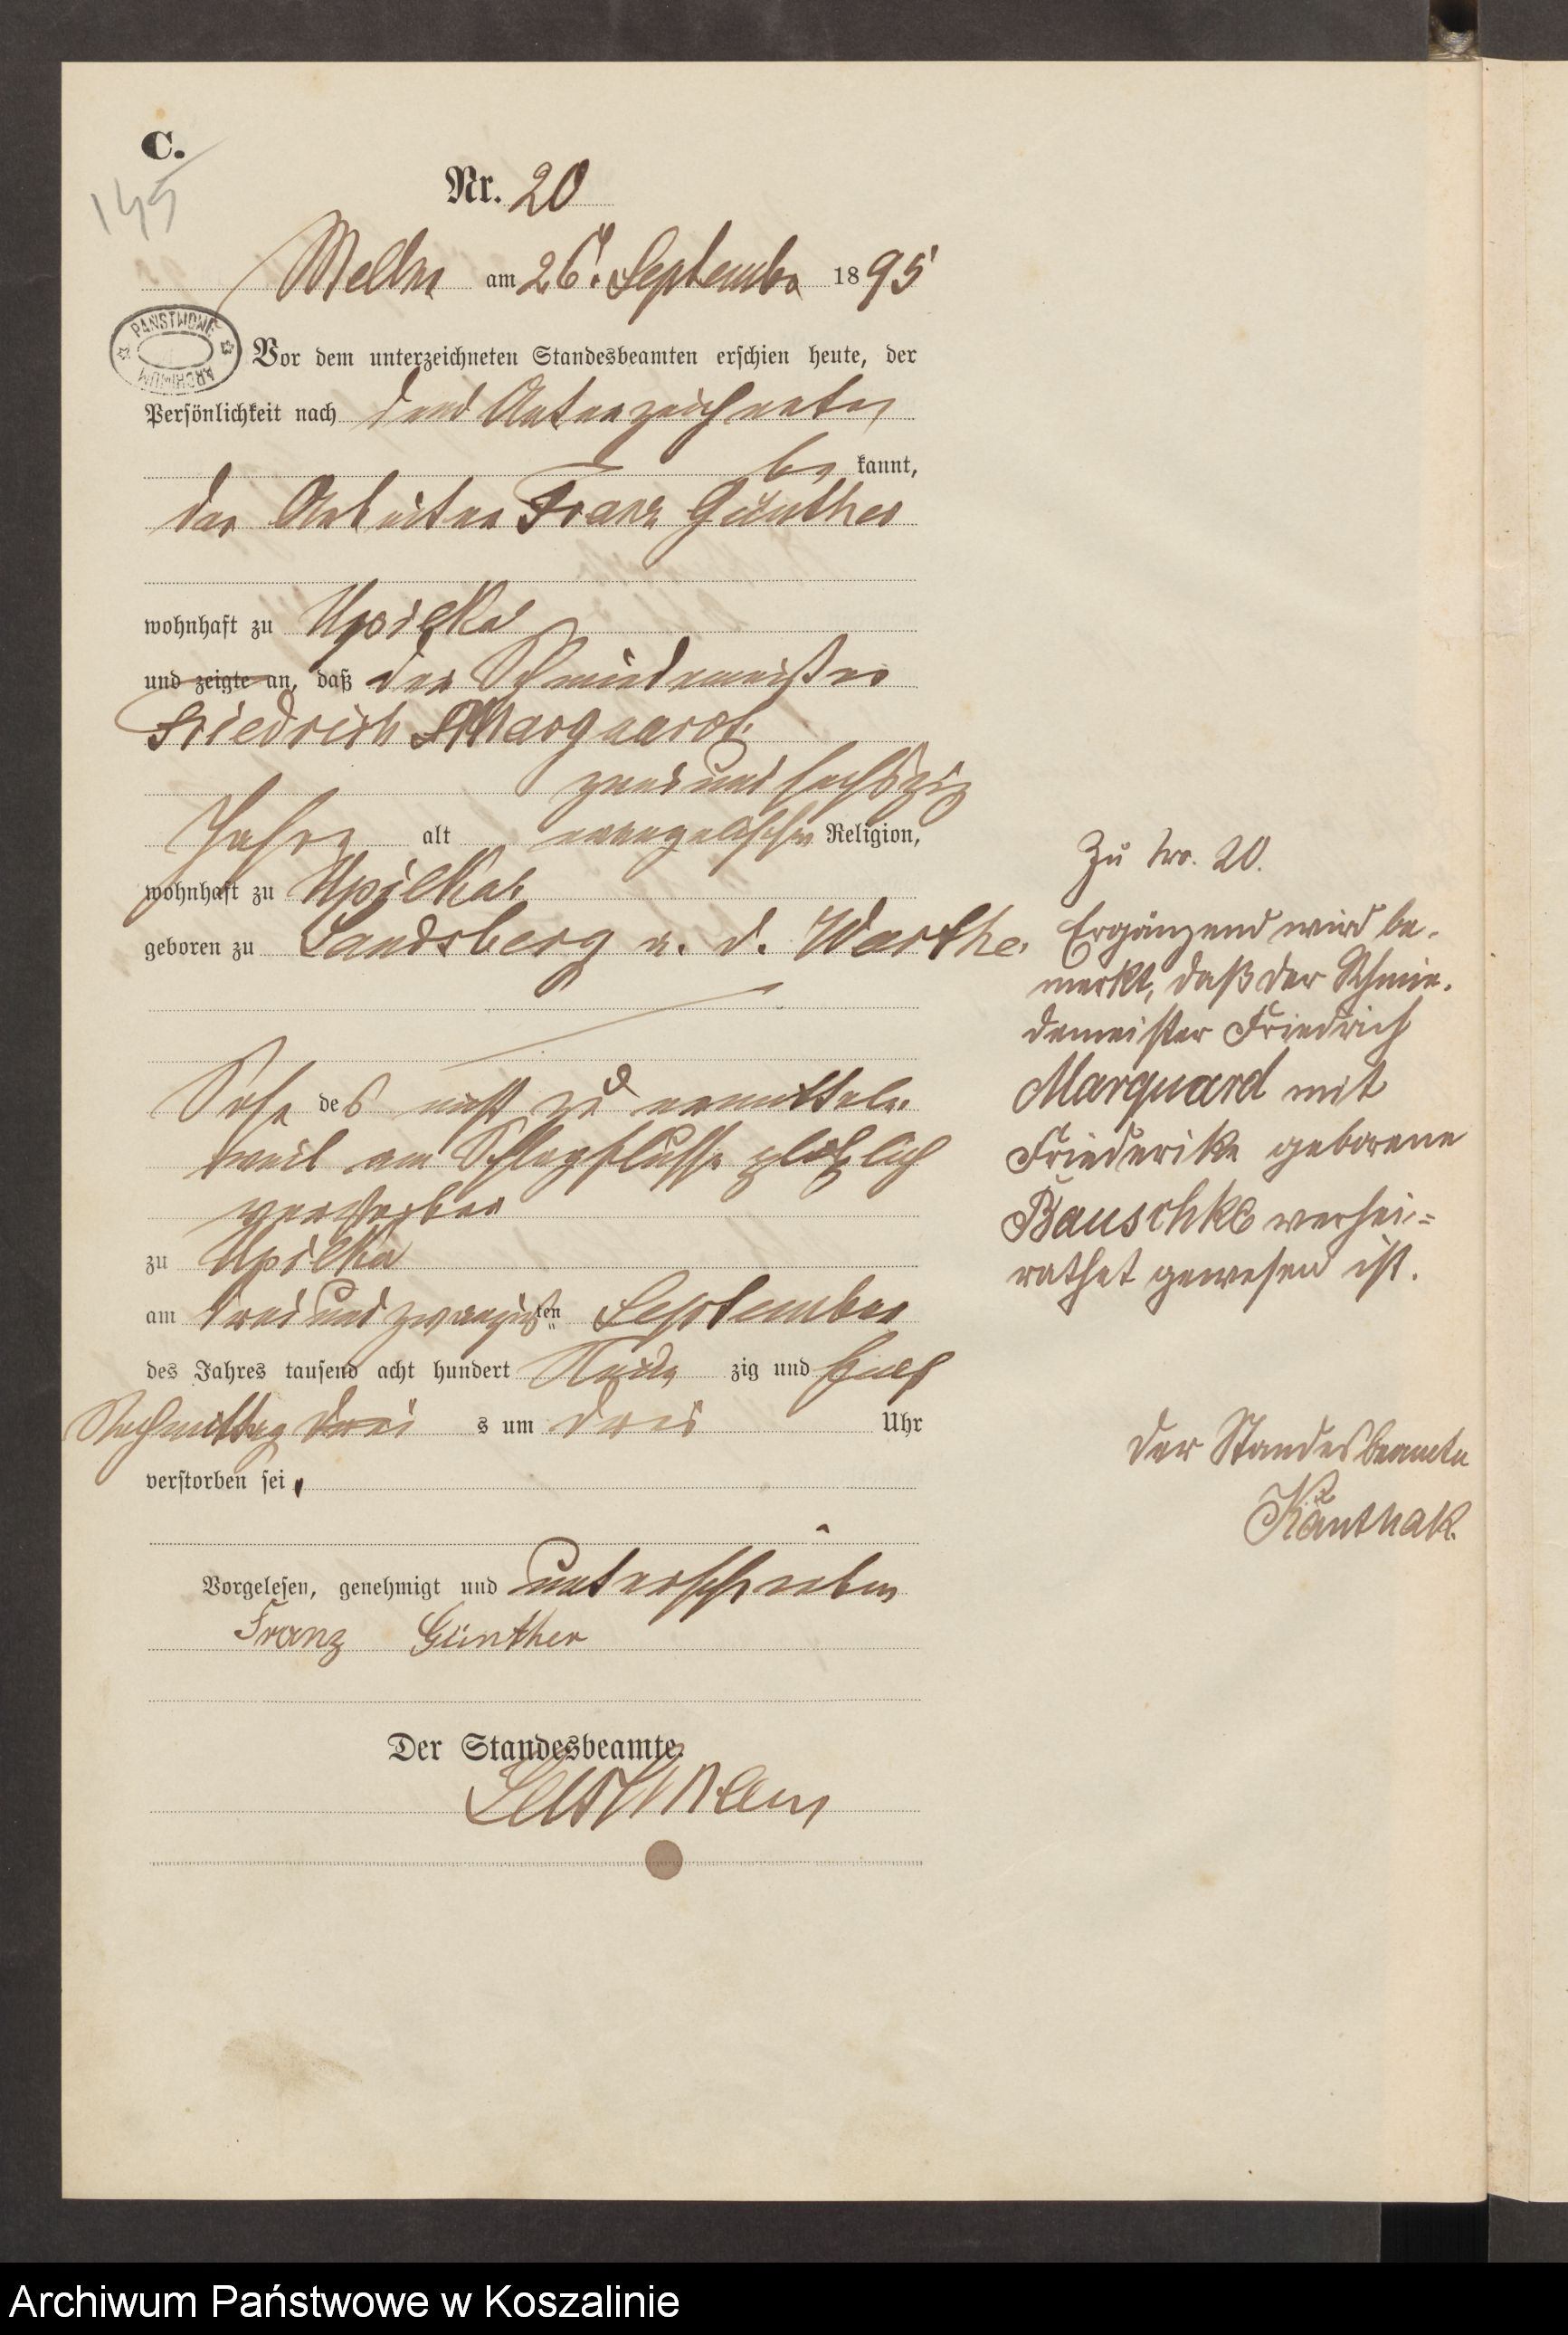 C.
149
Nr. 20
Melln am 26. September 1895
PAŃSTWOWE ARCHIWUM
Vor dem unterzeichneten Standesbeamten erschien heute, der
Persönlichkeit nach dem Unterzeichneten
be kannt,
der Arbeiter Franz Günther
wohnhaft zu Upilka
und zeigte an, daß der Schmiedemeister
Friedrich Marquardt
zwei und sechszig
Jahre alt evangelischer Religion,
wohnhaft zu Upilka
geboren zu Landsberg a. d. Warthe.
Sohn des nicht zu ermitteln
weil am Schlagflusse plötzlich
verstorben
zu Upilka
am drei und zwanzigsten September
des Jahres tausend acht hundert Neun zig und fünf
Nachmittag drei s um drei Uhr
verstorben sei
Vorgelesen, genehmigt und unterschrieben
Franz Günther
Der Standesbeamte.
Zu Nro. 20.
Ergänzend wird be-
merkt, daß der Schmie-
demeister Friedrich
Marquard mit
Friederike geborene
Bauschke verhei-
rathet gewesen ist.
Der Standesbeamte
Kanthak.
Archiwum Państwowe w Koszalinie